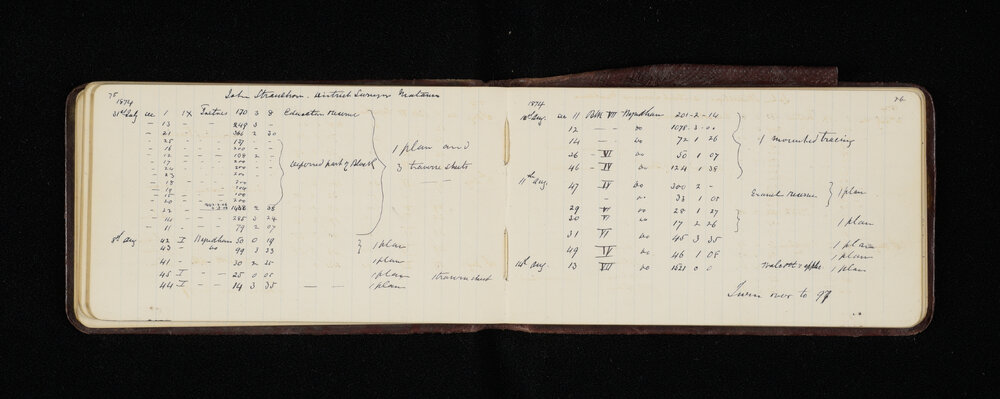 75
John Strauchon. District Surveyor Mataura
1874
31st July sec 1 IX 170 3 8 Education reserve
— 13 — — 249 3 —
— 21 — — 366 2 30
— 25 — — 137 —
— 16 — — 200 —
— 12 — — 109 2 —
— 17 — — 200 —
— 24 — — 200 —
— 23 — — 200
— 18 — — 200
— 19 — — 104
— 15 — — 100
— 20 — — 200
— 22 — — 1436 2 38
— 14 — — 285 3 24
— 11 — — 79 2 07
part of Block
1 plan and
3 traverse sheets
8th Aug 42 I Wyndham 50 0 19
43 — do 99 3 23
1 plan
41 — — 30 2 25 1 plan
45 I — — 25 0 05 1 plan traverse sheet
44 I — — 14 3 35 — — 1 plan
76
1874
10th Aug. sec 11 Blk VII Wyndham 201-2-14
12 — — do 1075 3 00
14 — — do 72 1 26
26 — VI do 50 1 07
46 — IV do 124 1 38
1 mounted tracing
11th Aug. 47 — IV do 300 2 -
— — do 33 1 05
Gravel reserve 1 plan
29 — V — do 28 1 27
30 — VI do 17 2 26
1 plan
31 VI do 45 3 35 1 plan
49 VI do 46 1 08 1 plan
14th Aug. 13 VII do 1621 0 0 1 plan
Turn over to 97